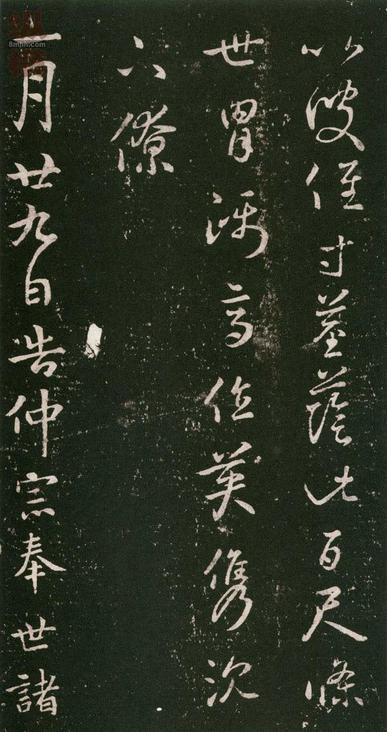 以彼徑寸莖蔭此百尺條
世冑躡高位英儁沈
下僚
月廿九日告仲宗奉世諸